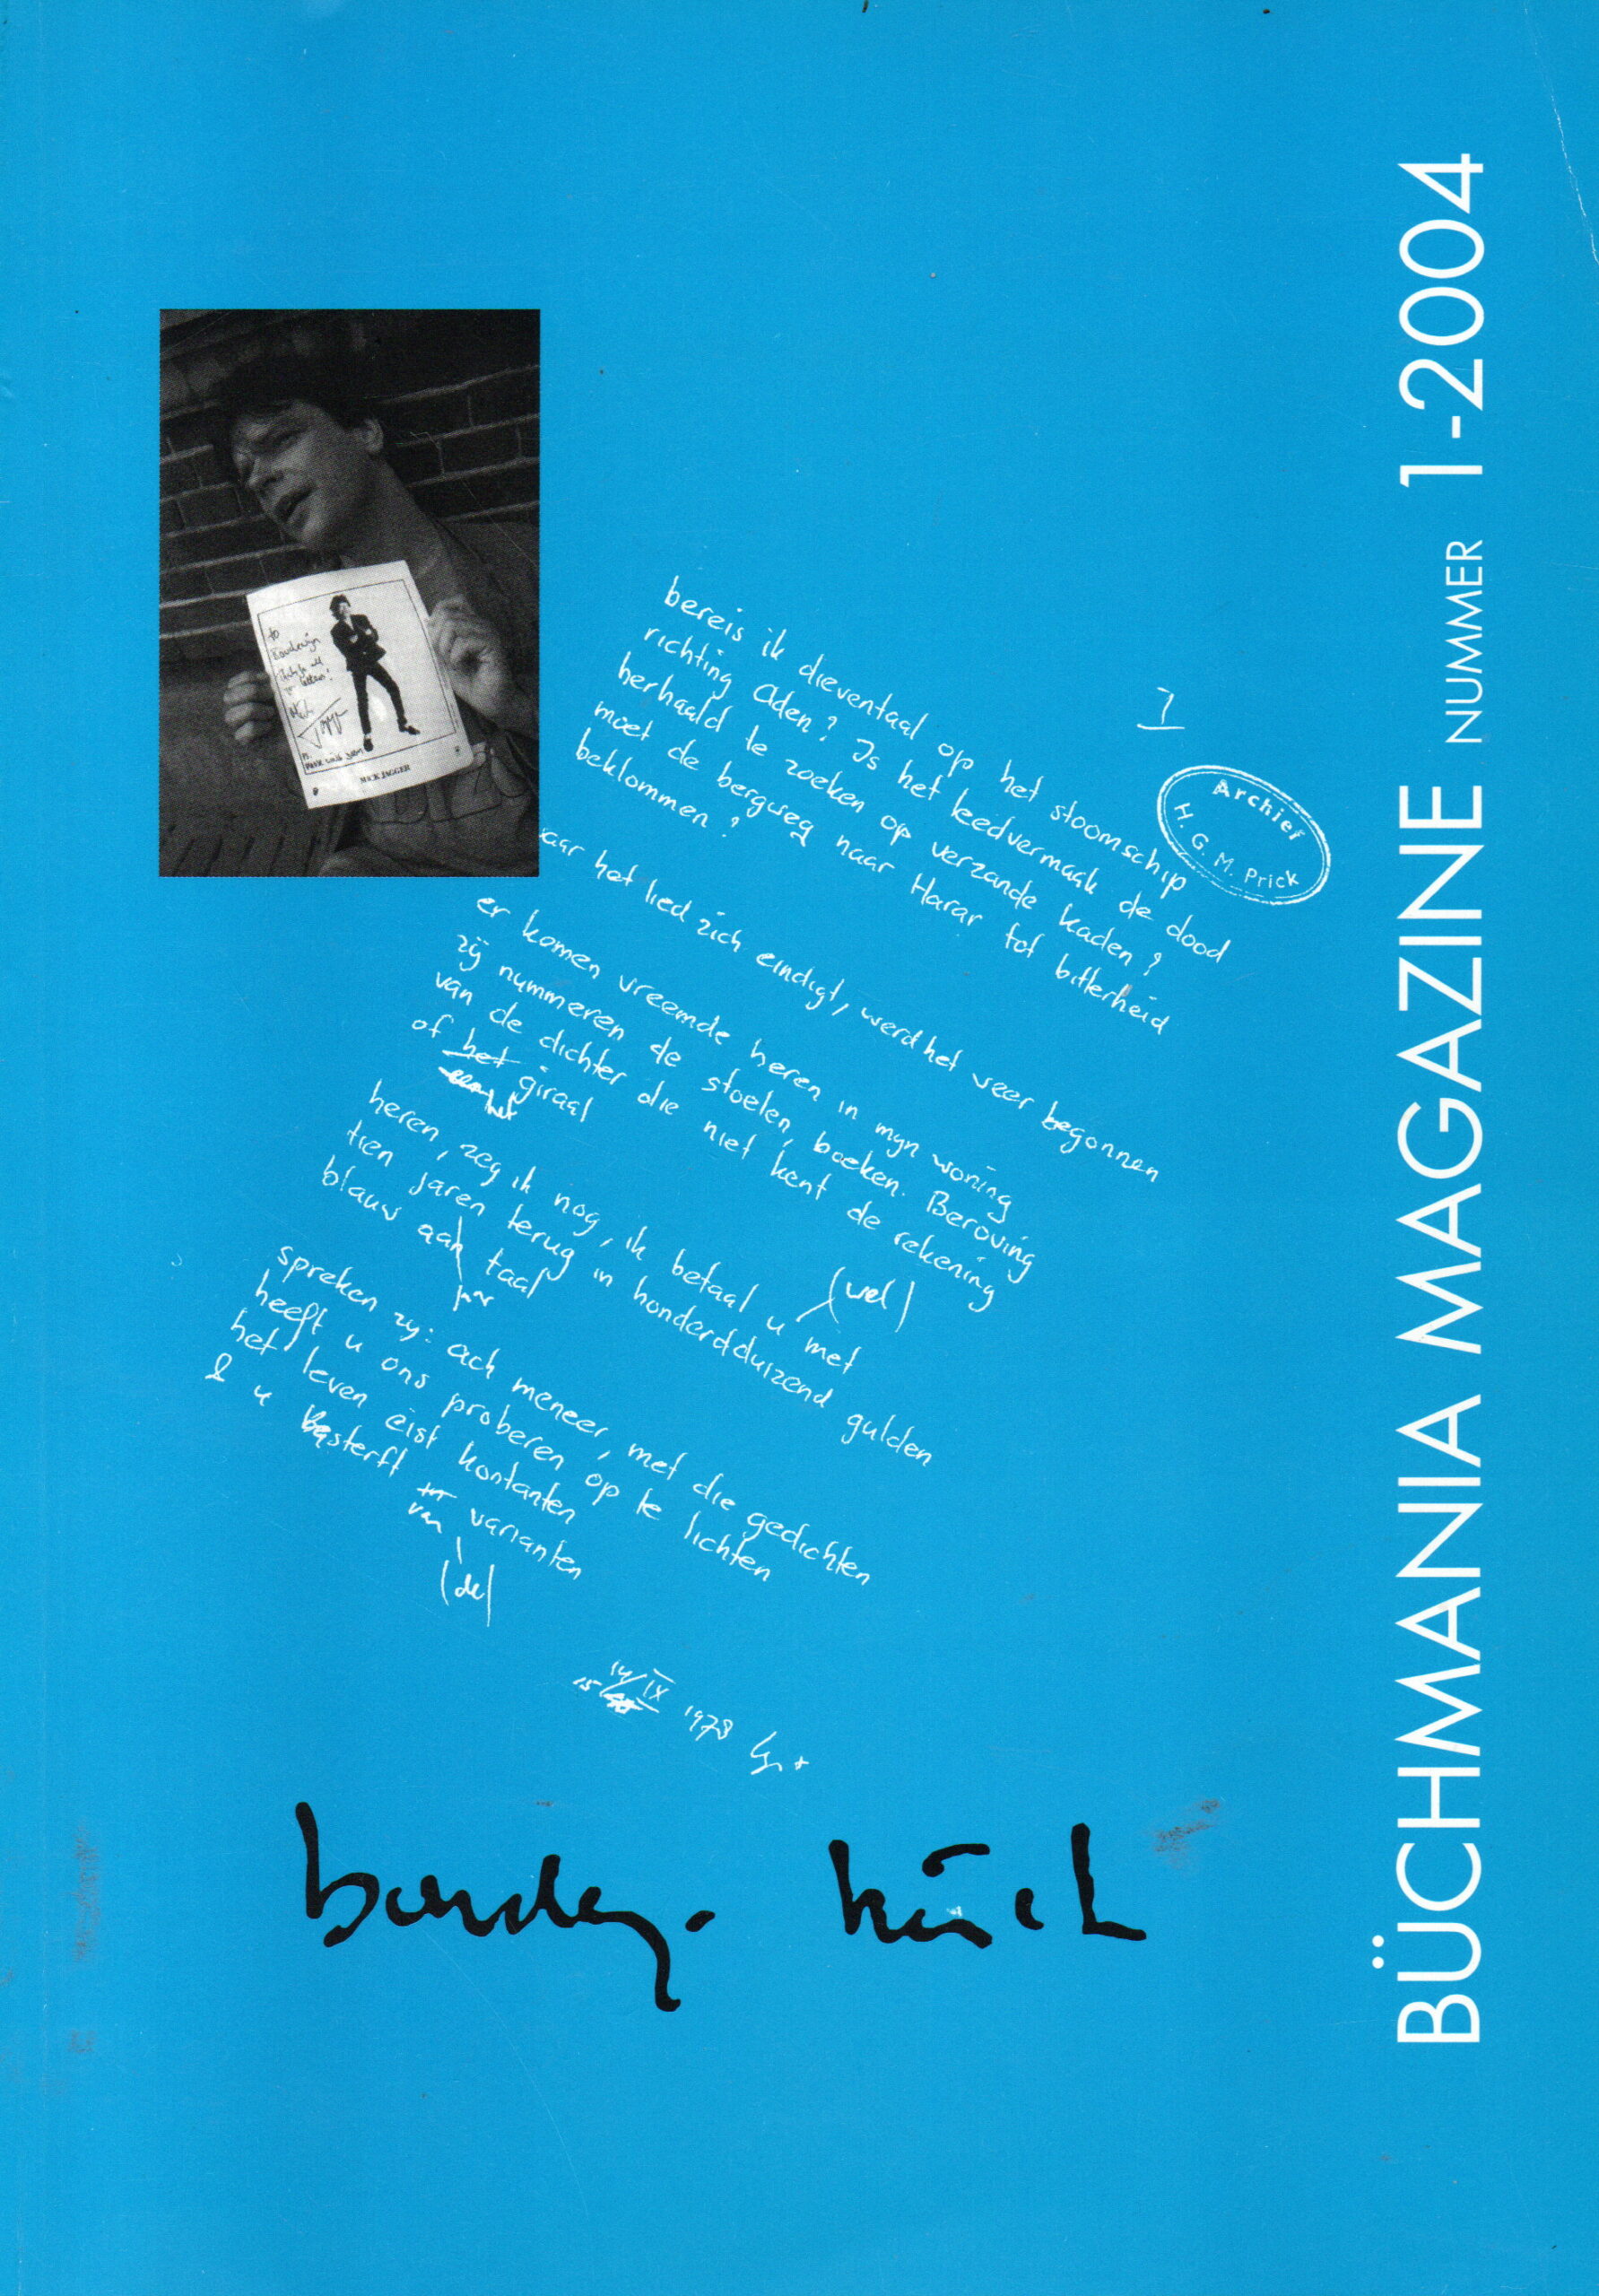 BÜCHMANIA MAGAZINE NUMMER 1-2004
to
Boudewijn
MICK JAGGER
1
Archief
H. G. M. Prick
bereis ik dieventaal op het stoomschip
richting Aden? Is het leedvermaak de dood
herhaald te zoeken op verzande kaden?
moet de bergweg naar Harar tot bitterheid
beklommen?
aar het lied zich eindigt, werd het veer begonnen
er komen vreemde heren in mijn woning
zij nummeren de stoelen, boeken. Beroving
van de dichter die niet kent de rekening
of het giraal
het
heren, zeg ik nog, ik betaal u met
(wel)
tien jaren terug in honderdduizend gulden
blauw aan taal
spreken zij: ach meneer, met die gedichten
heeft u ons proberen op te lichten
het leven eist kontanten
& u sterft varianten
van
(de)
14/IX 1978
15
boudewijn büch